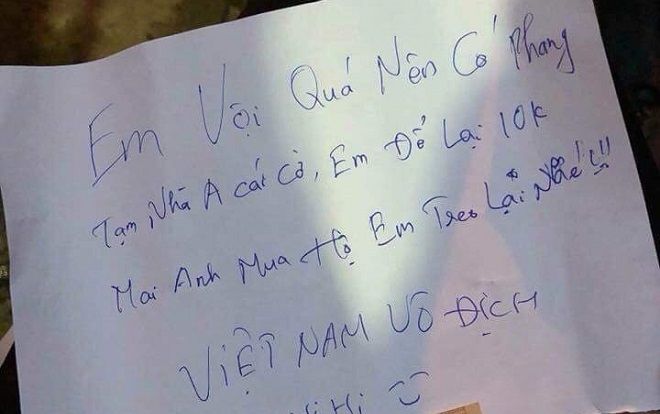 Em Vội Quá Nên Có Phang
Tạm Nhà A cái cờ, Em Để Lại 10k
Mai Anh Mua Hộ Em Treo Lại Nhé!!!
VIỆT NAM VÔ ĐỊCH
Hi Hi